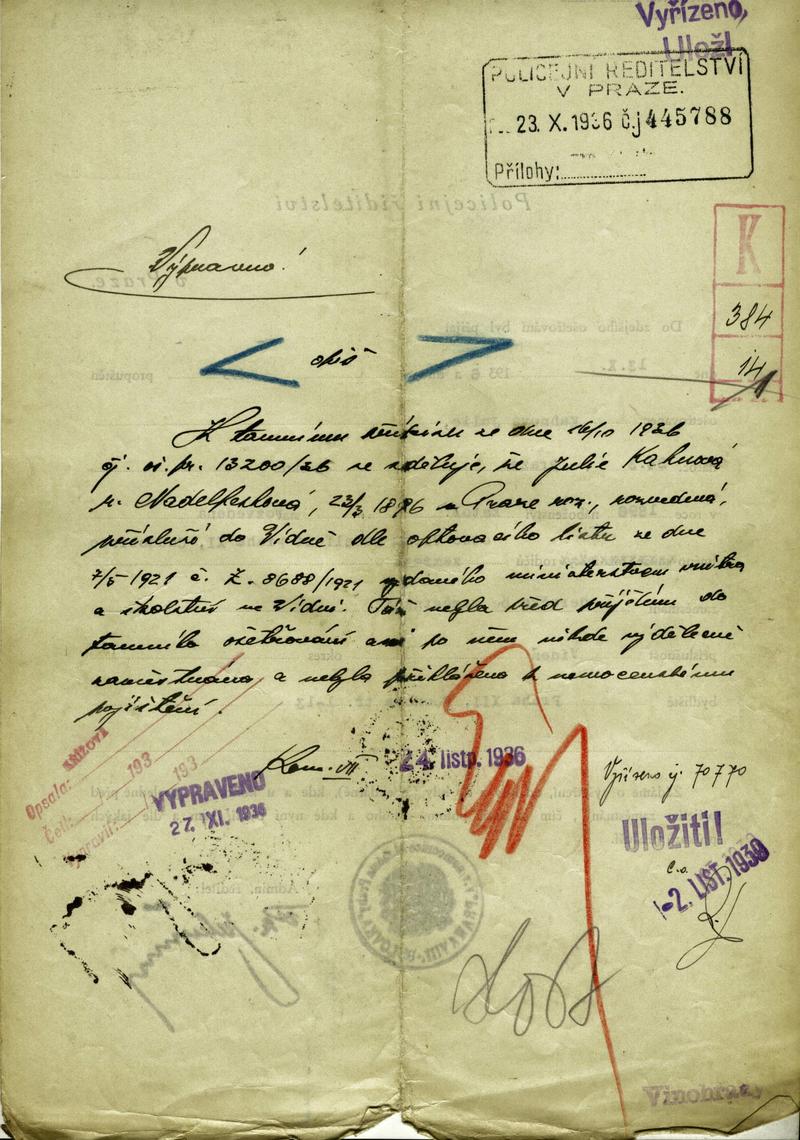 Vyřízeno,
Uloží
POLICEJNÍ ŘEDITELSTVÍ
V PRAZE.
23. X. 1936 č.j 445788
Přílohy:
K
384
14
Vypraveno!
opis
K tamnímu přípisu ze dne 16/10 1936
čj. os. pr. 13200/36 se sděluje, že Julie Kahnová
r. 23/3 v Praze nar., rozvedená,
přísluší do Vídně dle optovacího listu ze dne
7/5 1921 č. Z. 8688/1921 vydaného ministerstvem vnitra
a školství ve Vídni. Táž nebyla před přijetím do
tamního ošetřování ani po něm nikde výdělečně
zaměstnána a nebyla přihlášena k nemocenskému
pojištění.
Kom. VII
24. listp. 1936
Opsala:
193
Četl:
193
Vypravil:
VYPRAVENO
27. XI. 1936
Vyřízeno čj. 70770
Uložiti!
c.a.
-2. LIST. 1939
Vinohrady